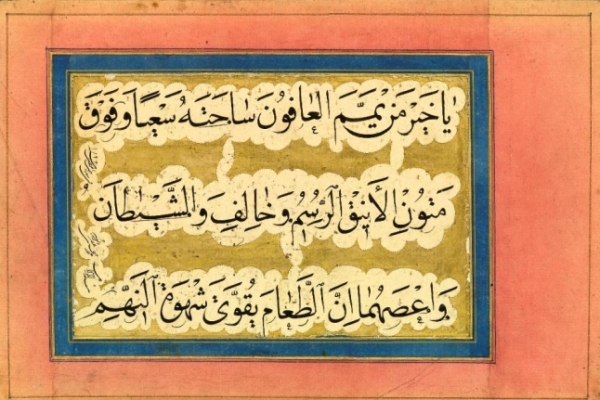 يَا خَيْرَ مَنْ يَمَّمَ الْعَافُونَ سَاحَتَهُ سَعْيًا وَفَوْقَ
مُتُونِ الْأَيْنُقِ الرُّسُمِ وَخَالِفِ وَالشَّيْطَانَ
وَاعْصِهِمَا اِنَّ الطَّعَامَ يُقَوِّي شَهْوَةَ النَّهِمِ